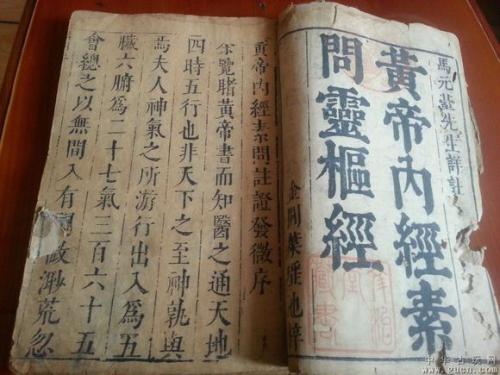 馬元臺先生詳註
黃帝內經素
問靈樞經
金閶葉
黃帝內經素問註證發微序
余覽睹黃帝書而知醫之通天地
四時五行也非天下之至神孰與
焉夫人神氣之所游行出入爲五
臟六腑爲二十七氣三百六十五
會總之以無間入有間故渺荒忽
中华古玩网
www.gucn.com